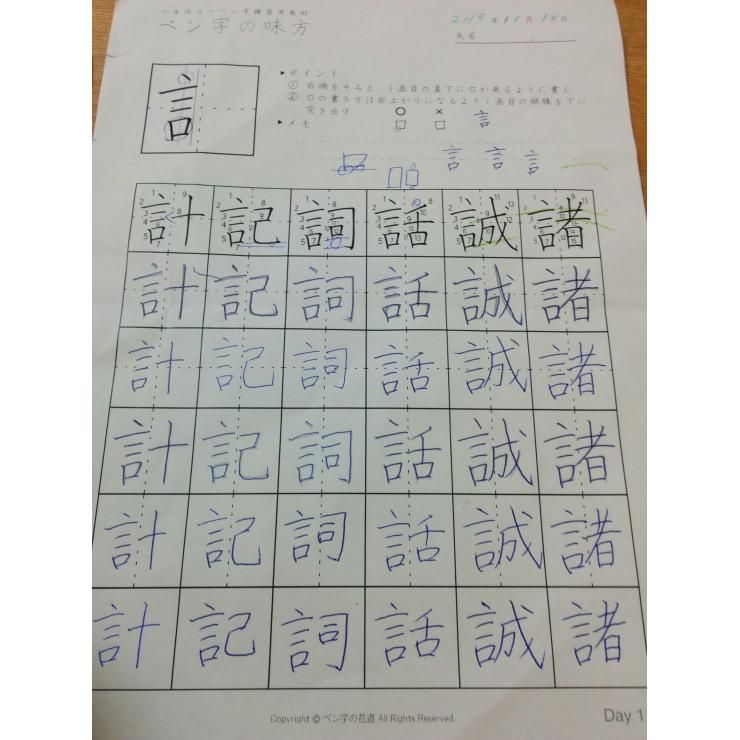 一生役立つペン字練習用教材
ペン字の味方
2015年11月18日
氏名
言
▶ポイント
① 右端をそろえ 1画目の真下に口が来るように書く
② 口の書き方は右上がりになるよう1画目の縦棒を下に
突き出す ○ ×
▶メモ 口 口 言
言 言 言
計 記 詞 話 誠 諸
計 記 詞 話 誠 諸
計 記 詞 話 誠 諸
計 記 詞 話 誠 諸
計 記 詞 話 誠 諸
計 記 詞 話 誠 諸
Copyright © ペン字の花道 All Rights Reserved.
Day 1